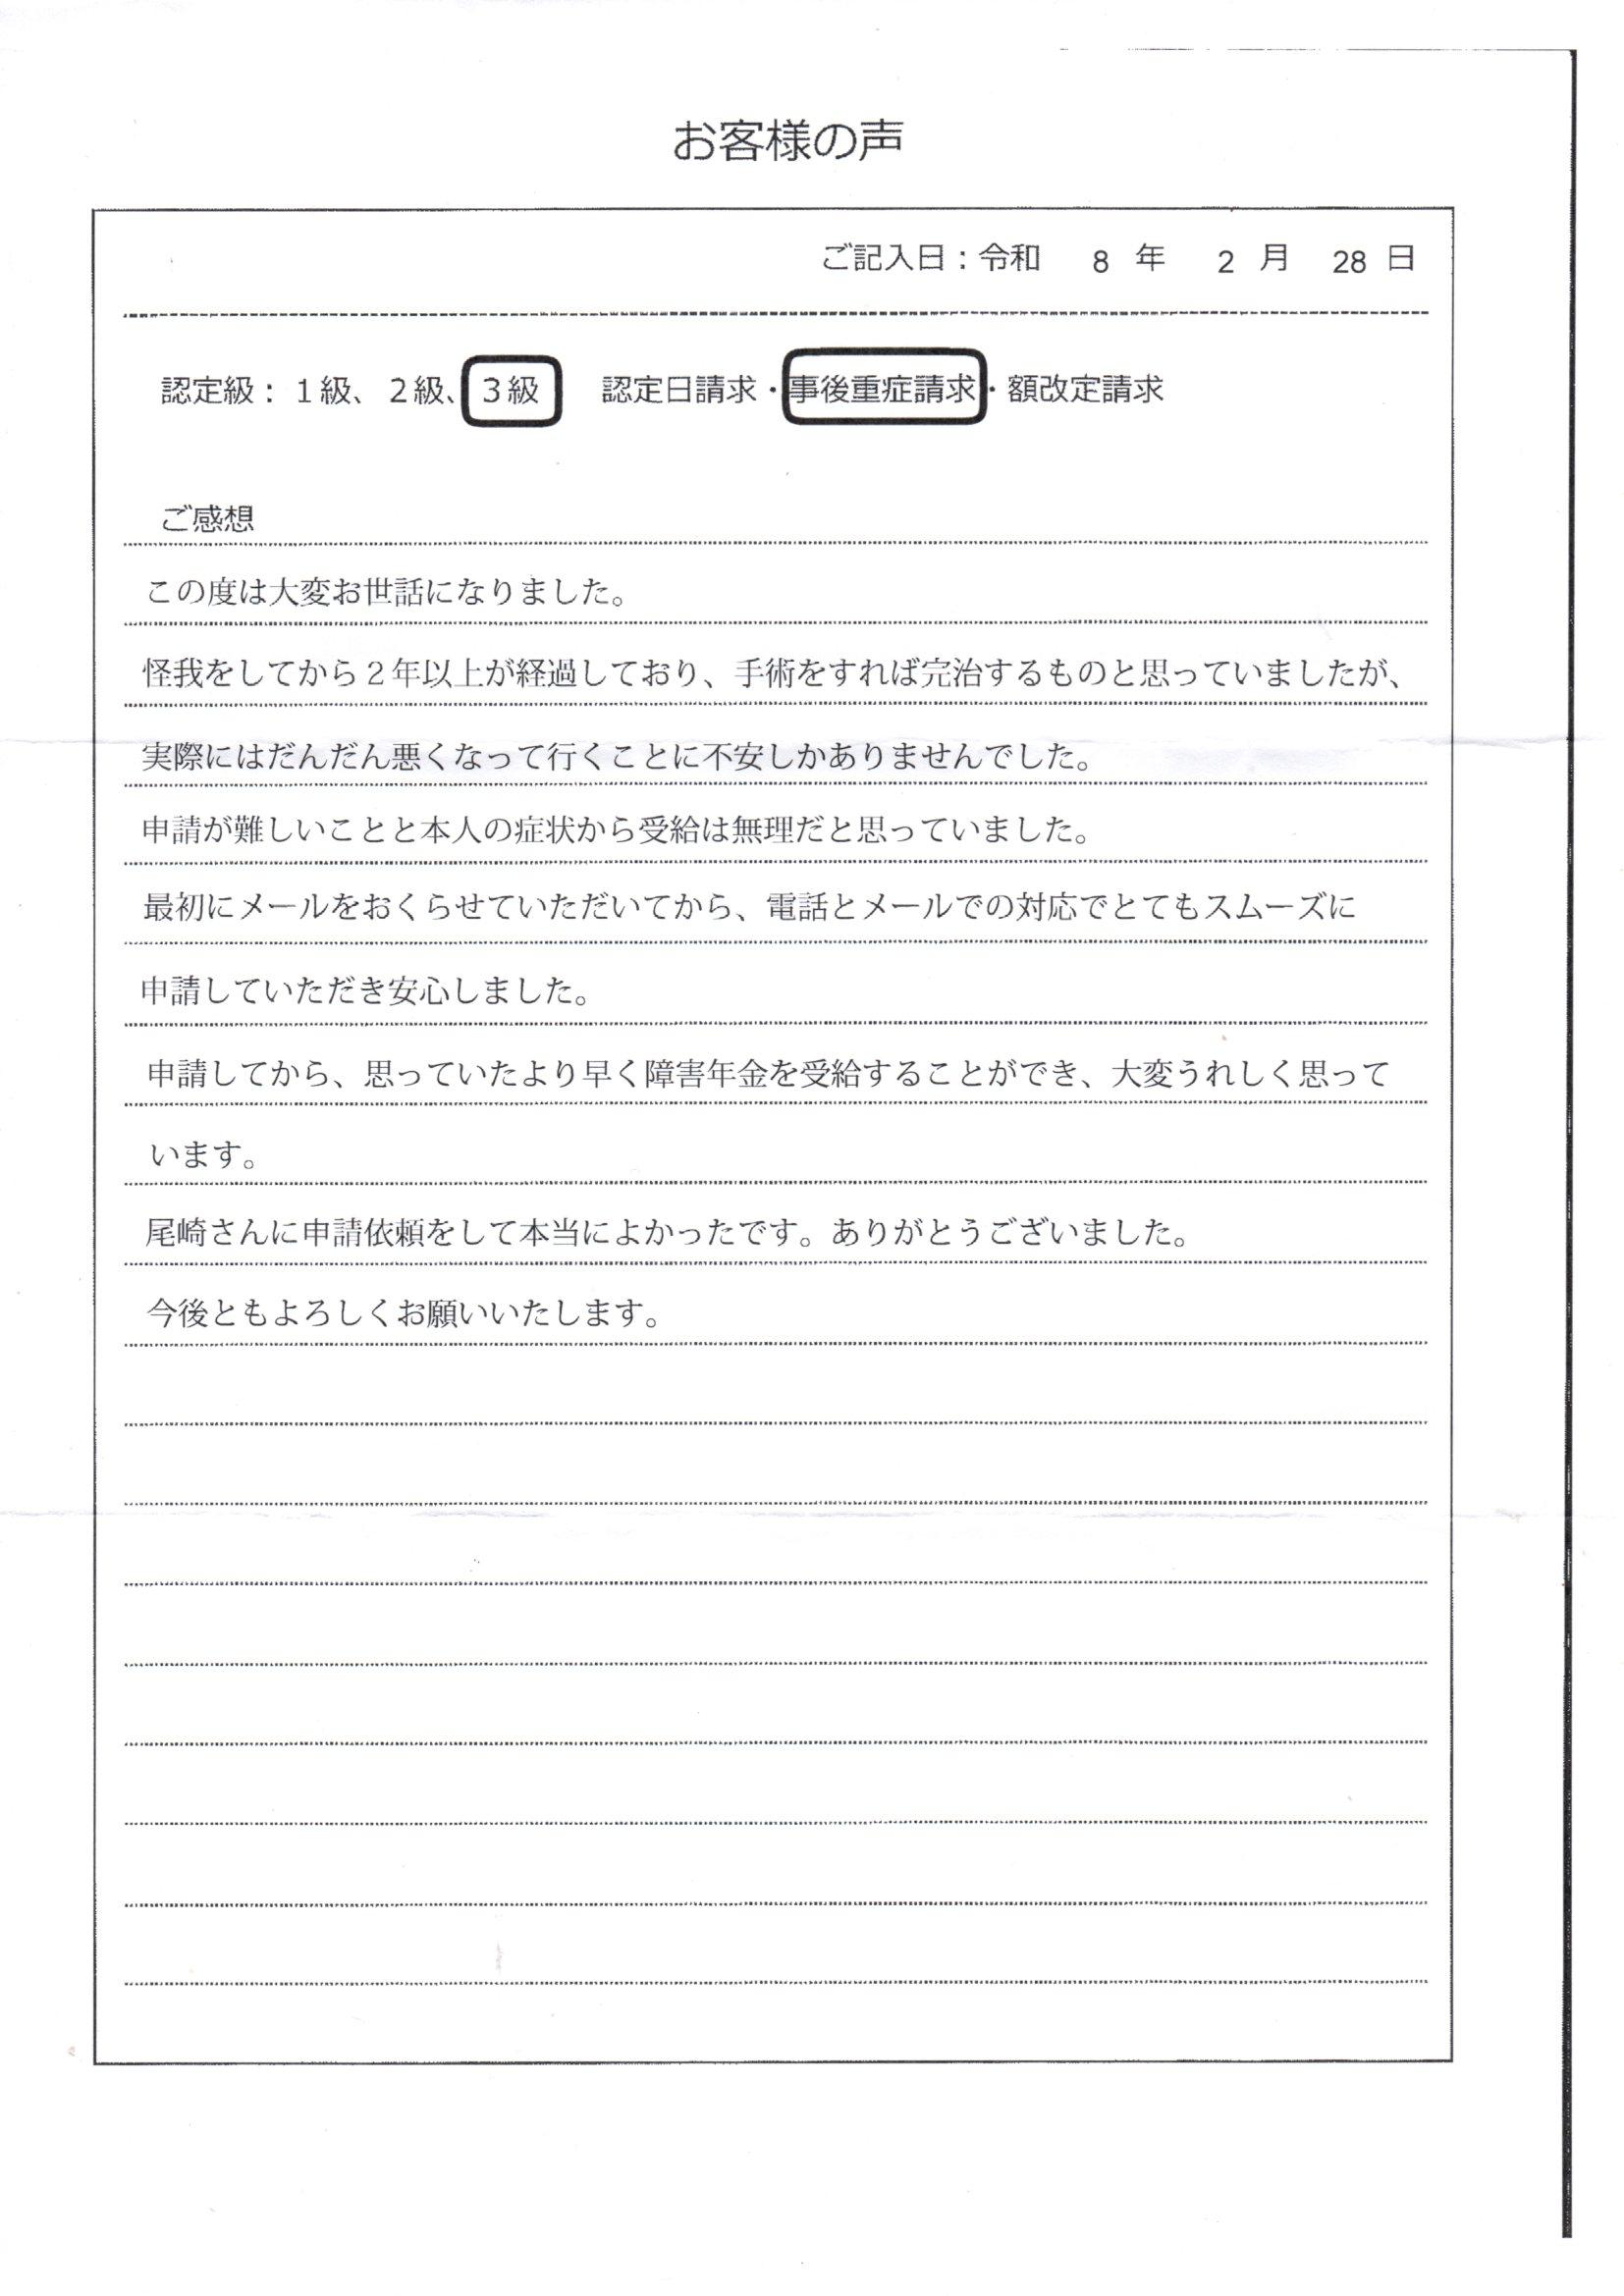 お客様の声
ご記入日：令和 8 年 2 月 28 日
認定級：１級、２級、３級 認定日請求・事後重症請求・額改定請求
ご感想
この度は大変お世話になりました。
怪我をしてから２年以上が経過しており、手術をすれば完治するものと思っていましたが、
実際にはだんだん悪くなって行くことに不安しかありませんでした。
申請が難しいことと本人の症状から受給は無理だと思っていました。
最初にメールをおくらせていただいてから、電話とメールでの対応でとてもスムーズに
申請していただき安心しました。
申請してから、思っていたより早く障害年金を受給することができ、大変うれしく思って
います。
尾崎さんに申請依頼をして本当によかったです。ありがとうございました。
今後ともよろしくお願いいたします。